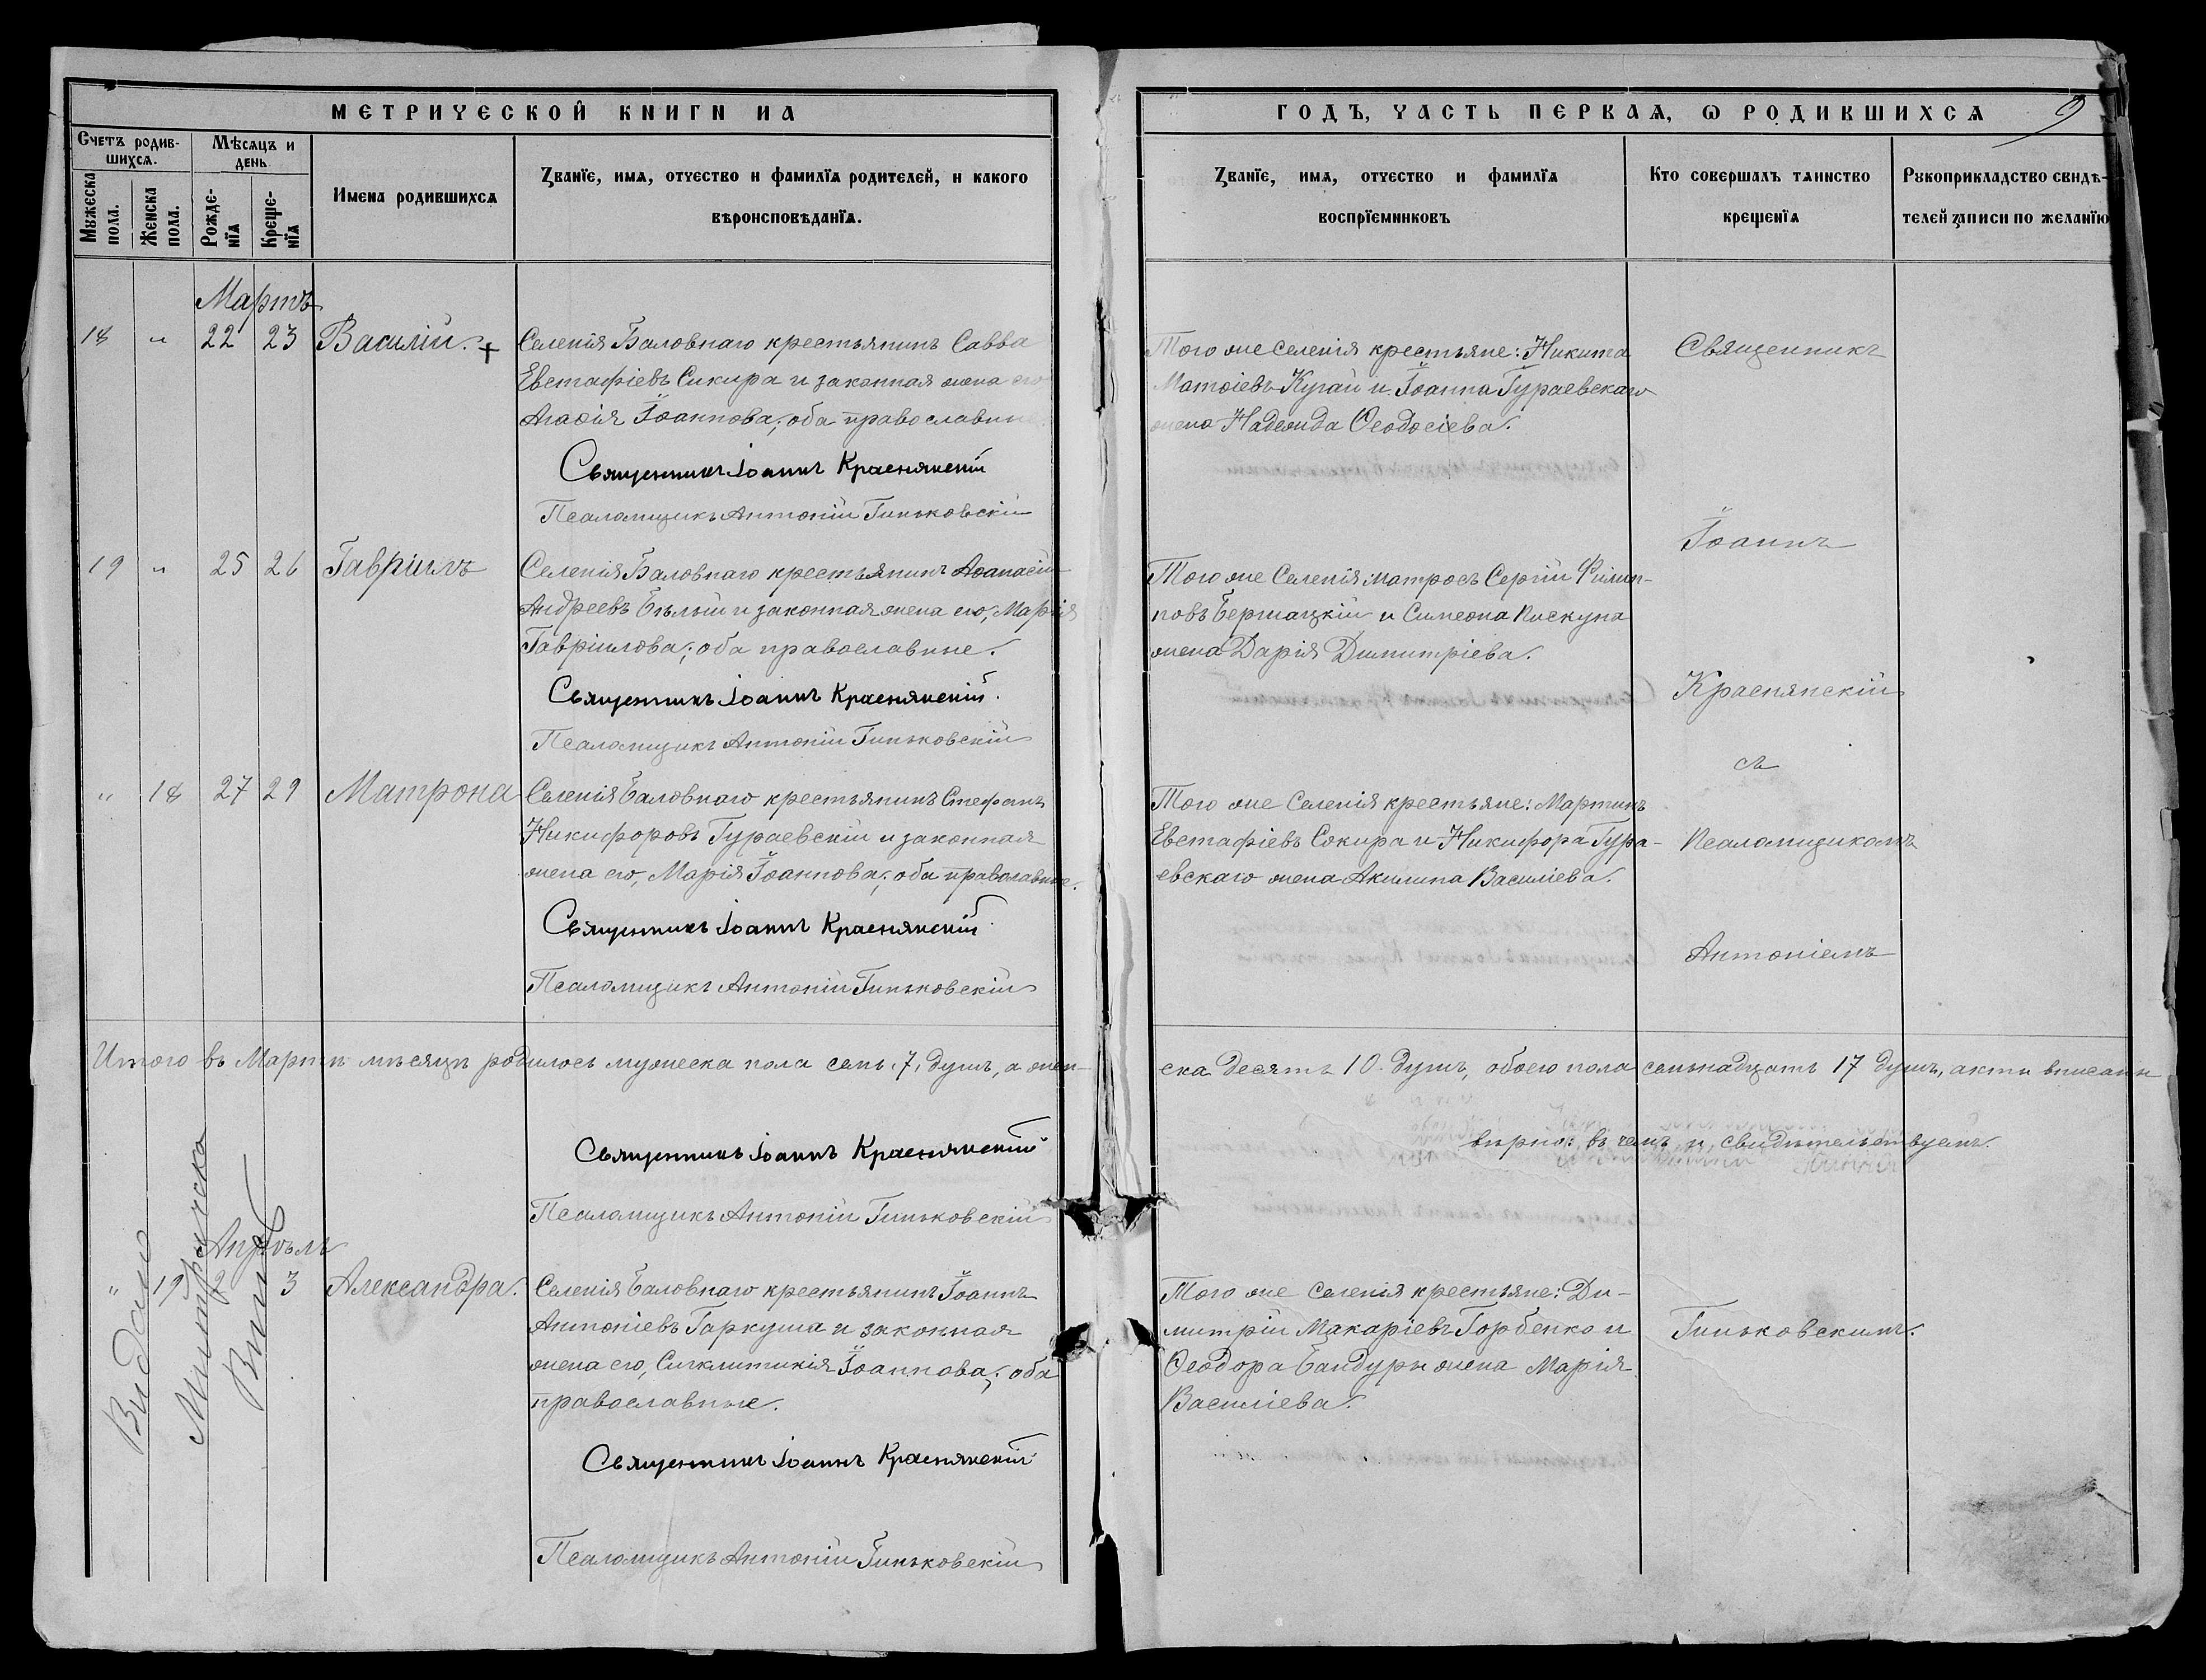 МЕТРИЧЕСКОЙ КНИГИ НА
Счетъ родив-
шихся.
Мѣсяцъ и
день
Мужеска
пола.
Женска
пола.
Рожде-
нїя
Креще-
нїя
Имена родившихся
Званїе, имя, отчество и фамилїя родителей, и какого
вѣроисповѣданїя.
Мартъ
18 " 22 23 Василій. +
Селенія Баловнаго крестьянинъ Савва
Евстафіевъ Сикира и законная жена его
Агафія Іоаннова; оба православные
Священникъ Іоаннъ Краснянскій
Псаломщикъ Антоній Гиньковскій
19 " 25 26 Гавріилъ
Селенія Баловнаго крестьянинъ Аѳанасій
Андреевъ Бѣлый и законная жена его, Марія
Гавріилова; оба православные.
Священникъ Іоаннъ Краснянскій.
Псаломщикъ Антоній Гиньковскій
" 18 27 29 Матрона
Селенія Баловнаго крестьянинъ Стефанъ
Никифоровъ Гураевскій и законная
жена его, Марія Іоаннова; оба православные.
Священникъ Іоаннъ Краснянскій
Псаломщикъ Антоній Гиньковскій
Итого въ Мартѣ мѣсяцѣ родилось мужеска пола семь 7. душъ, а жен-
Священникъ Іоаннъ Краснянскій
Псаломщикъ Антоній Гиньковскій
Апрѣль
" 19 2 3 Александра.
Селенія Баловнаго крестьянинъ Іоаннъ
Антоніевъ Гаркуша и законная
жена его, Сигклитикія Іоаннова; оба
православные.
Священникъ Іоаннъ Краснянскій
Псаломщикъ Антоній Гиньковскій
ГОДЪ, ЧАСТЬ ПЕРВАЯ, Ѡ РОДИВШИХСЯ
9
Званїе, имя, отчество и фамилїя
воспрїемниковъ
Кто совершалъ таинство
крещенїя
Рукоприкладство свидѣ-
телей записи по желанїю
Того же селенія крестьяне: Никита
Матѳіевъ Кугай и Іоанна Гураевскаго
жена Надежда Ѳеодосіева.
Того же Селенія матросъ Сергій Филип-
повъ Бершацкій и Симеона Пискуна
жена Дарія Димитріева.
Того же Селенія крестьяне: Мартинъ
Евстафіевъ Сокира и Никифора Гура-
евскаго жена Акилина Василіева.
Священникъ
Іоаннъ
Краснянскій
съ
Псаломщикомъ
Антоніемъ
ска десять 10. душъ, обоего пола семьнадцать 17 душъ, акты вписаны
вѣрно: въ чемъ и свидѣтельствуемъ.
Того же селенія крестьяне: Ди-
митрій Макаріевъ Горбенко и
Ѳеодора Бандуры жена Марія
Василіева.
Гиньковскимъ.